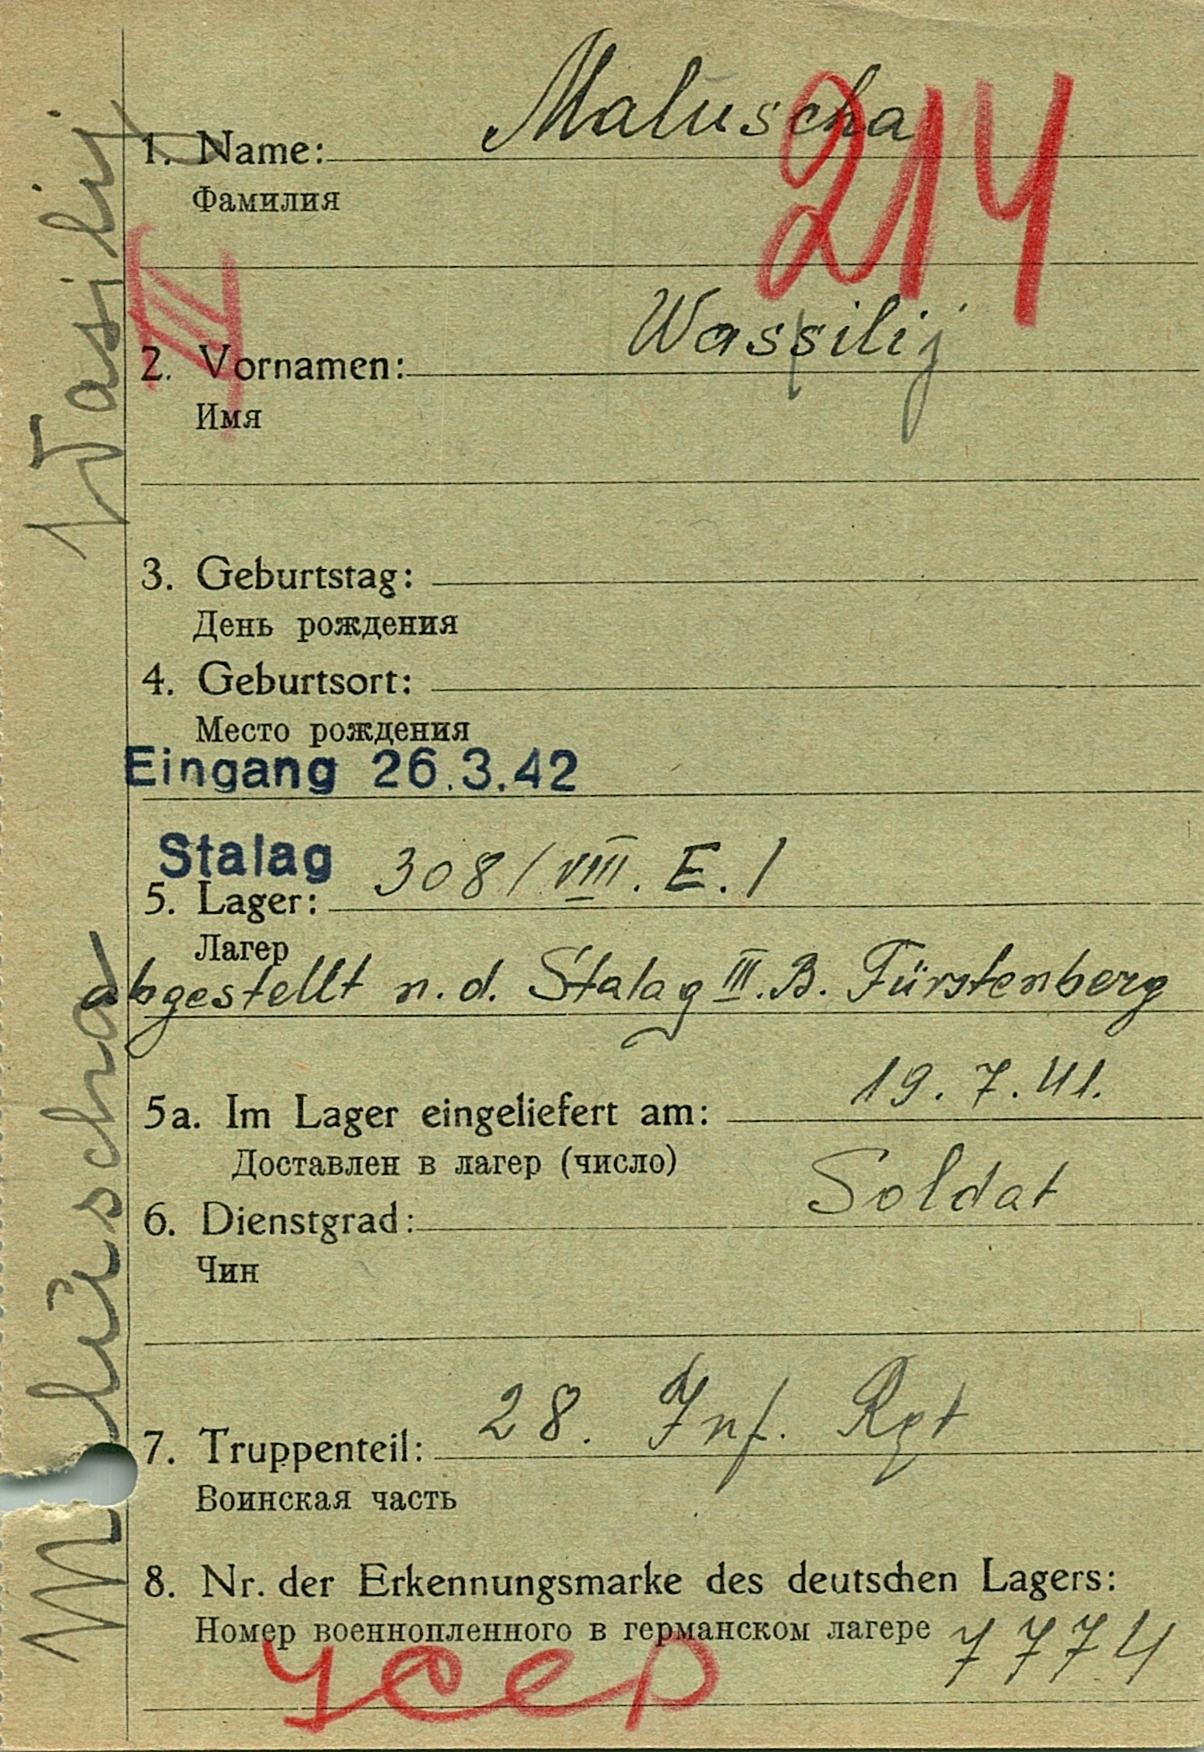 Maluscha
1. Name:
Фамилия
214
III
Wassilij
2. Vornamen:
Имя
3. Geburtstag:
День рождения
4. Geburtsort:
Место рождения
Eingang 26.3.42
Stalag 308/VIII. E. 1
5. Lager:
Лагер
abgestellt n. d. Stalag III. B. Fürstenberg
5a. Im Lager eingeliefert am: 19.7.41.
Доставлен в лагер (число)
6. Dienstgrad: Soldat
Чин
7. Truppenteil: 28. Inf. Rgt
Воинская часть
8. Nr. der Erkennungsmarke des deutschen Lagers:
Номер военнопленного в германском лагере 7774
Wasilij